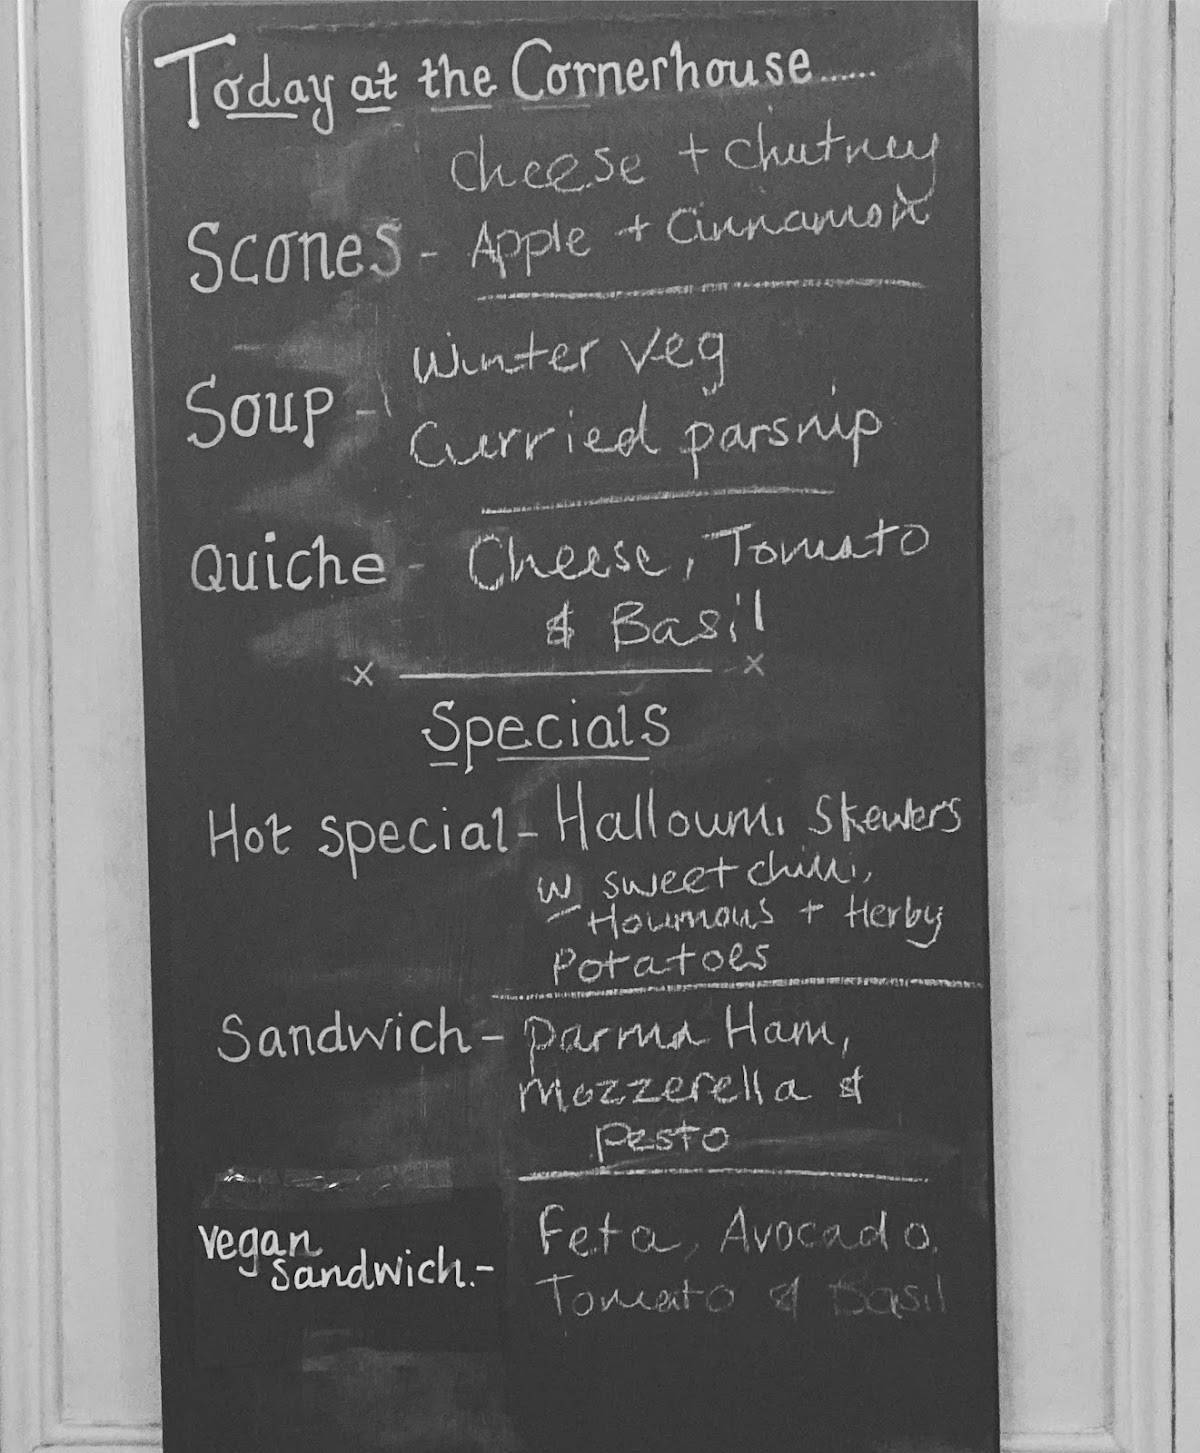 Today at the Cornerhouse......
Cheese + Chutney
Scones - Apple + Cinnamon
Winter Veg
Soup -
Curried parsnip
Quiche - Cheese, Tomato
& Basil
x x
Specials
Hot special - Halloumi Skewers
w sweet chilli,
Houmous + Herby
Potatoes
Sandwich - Parma Ham,
Mozzerella &
Pesto
vegan
sandwich.-
Feta, Avocado,
Tomato & Basil